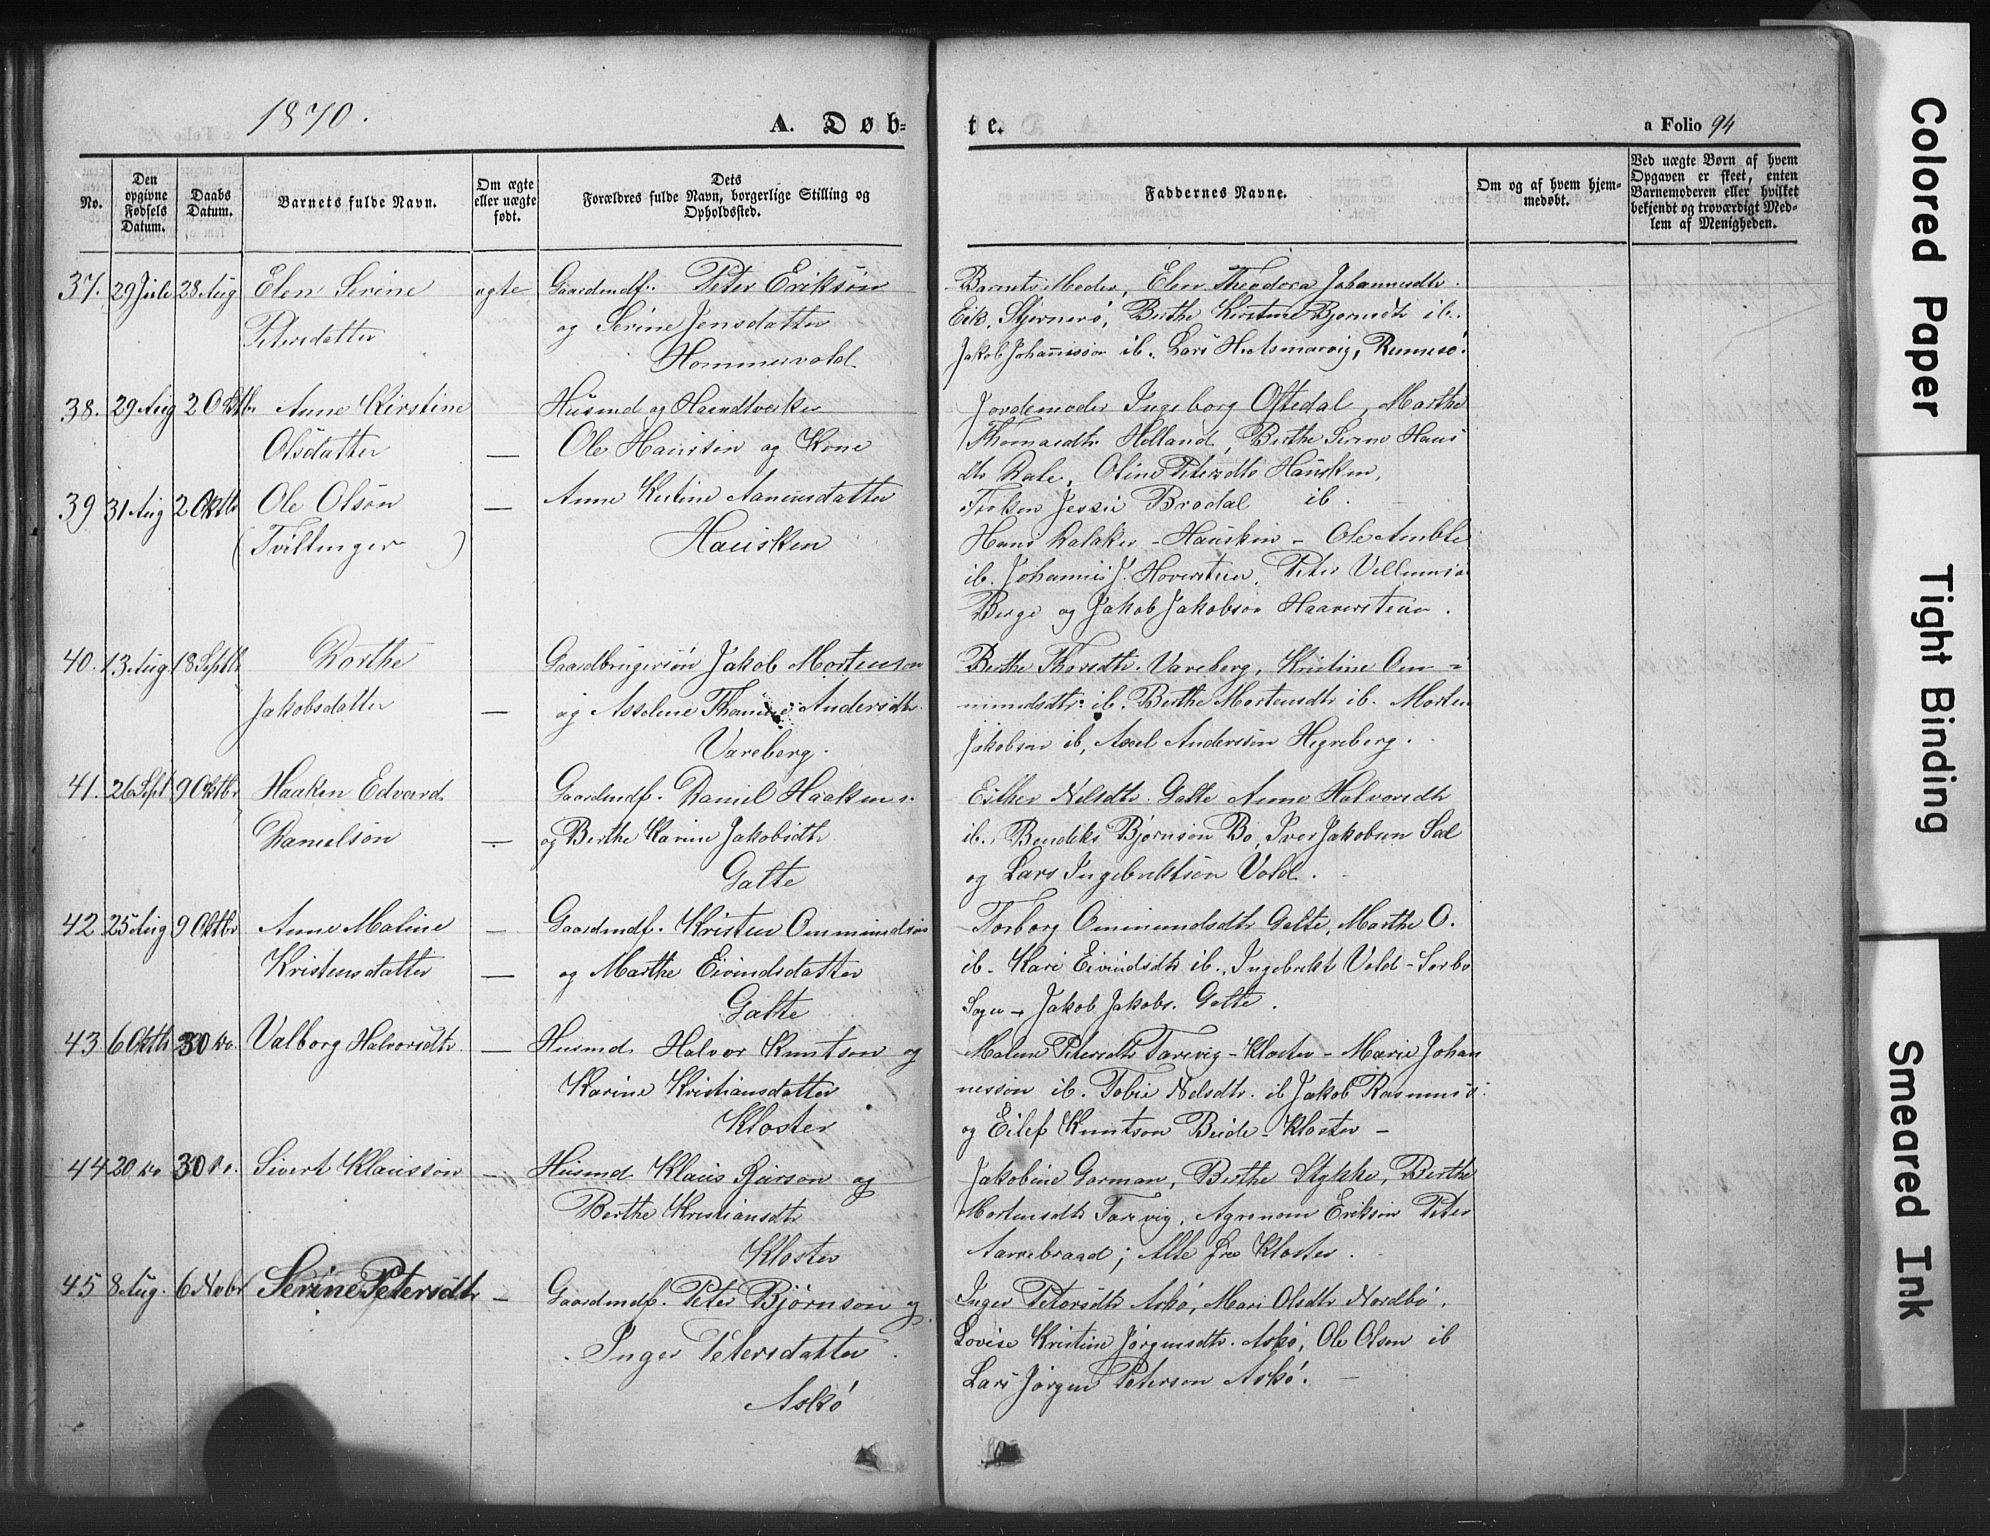 1870.
A. Døb-
te.
a Folio 94
No.
Den opgivne Fødsels Datum.
Daabs Datum.
Barnets fulde Navn.
Om ægte eller uægte født.
Dets Forældres fulde Navn, borgerlige Stilling og Opholdssted.
Faddernes Navne.
Om og af hvem hjemmedøbt.
Ved uægte Børn af hvem Opgaven er skeet, enten Barnemoderen eller hvilket bekjendt og troværdigt Medlem af Menigheden.
37. 29 Juli 28 Aug Elen Serine ægte Gaardmdf. Peter Erikson
Petersdatter og Serine Jensdatter
Hommersvold
Barnets Moder, Elen Theodora Johannesdtr.
Eik, Berthe Kirstine Bjornsdtr ib.
Jakob Johannesson ib. Lars Rennesö.
38. 29 Aug 2 Oktb. Anne Kirstine Husmd og Haandverker
Olsdatter — Ole Hansen og Kone
39 31 Aug 2 Oktbr Ole Olsön — Anne Kirstine Aanensdatter
(Tvillinger) Hausken
Jordemoder Ingeborg Oftedal, Marthe
Thomasdtr Helland, Berthe Serine Hans
dtr Dale, Oline Petersdtr Hausken,
Frøken Jessie Brodal ib.
Hans Dalaker - Hausken - Ole Amble
ib. Johannes J. Hoverstein, Peter
Berge og Jakob Jakobson Haaverstein.
40. 13 Aug. 18 Septbr Dorthe Gaardbrugersön Jakob Mortenson
Jakobsdatter — og Asseline Andersdtr.
Vareberg.
Berthe Thorsdtr. Vareberg, Kristine Om-
mundsdtr. ib. Berthe Mortensdtr ib. Morten
Jakobsen ib, Axel Anderssön Hegreberg.
41. 26 Sept 9 Oktbr Haaken Edvard Gaardmdf. Daniel Haakens.
Danielsön — og Berthe Karine Jakobsdtr
Galte
Esther Nelsdtr. Galte Anne Halvorsdtr
ib., Bendiks Bjørnsøn Bo, Iver Jakobsen Sæl
og Lars Ingebrektsen Vold.
42 25 Aug 9 Oktbr Anne Maline — Gaardmdf. Kristen Ommundsen
Kristensdatter — og Marthe Eivindsdatter
Galte
Torborg Ommundsdtr Galte, Marthe O.
ib. Kari Eivindsdtr ib., Ingebrekt Vold - Sørbo
Sogn - Jakob Jakobs. Galte.
43 6 Oktb 30 do Valborg Halvorsdtr — Husmd. Halvor Knutson og
Karine Kristiansdatter
Kloster
Malene Petersdtr Tarevig - Kloster - Marie Johan
nessön ib. Tobie Nelsdtr. ib Jakob Rasmuss.
og Eilef Knutson Beide - Kloster -
44 20 do 30 do. Sivert Klausson — Husmd Klaus Sjurson og
Berthe Kristiansdtr
Kloster
Jakobine Garman, Berthe Stykke, Berthe
Mortensdtr Tarevig, Agronom Erikson Peter
Aarrebraad; Alle fra Kloster.
45 8 Aug. 6 Novbr Serine Petersdtr — Gaardmdf. Peter Bjørnson og
Inger Petersdatter.
Askö
Inger Petersdtr Askö, Mari Olsdtr Nordbö.
Lovise Kristine Jørgensdtr. Askö, Ole Olsen ib
Lars Jørgen Peterson Askö.
Colored Paper
Tight Binding
Smeared Ink